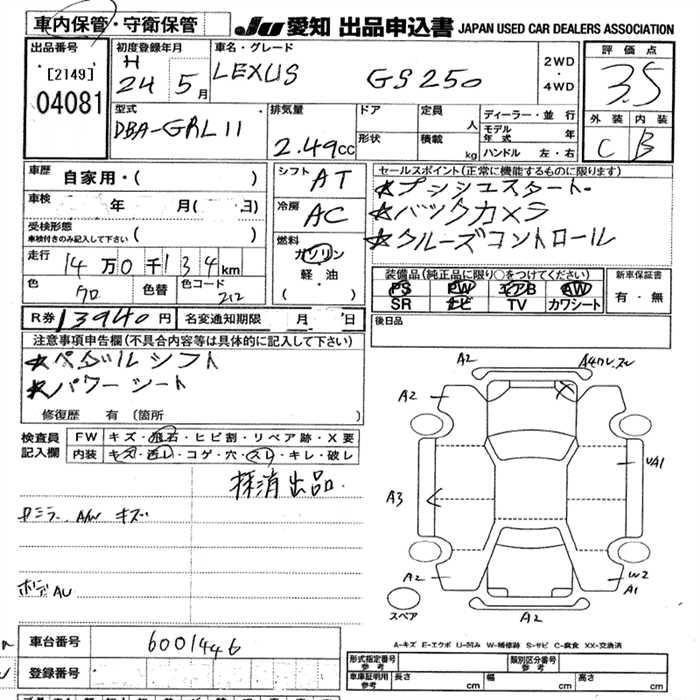 車内保管・守衛保管 JU 愛知 出品申込書 JAPAN USED CAR DEALERS ASSOCIATION
出品番号 [2149] 04081
初度登録年月 H 24 5月
車名・グレード LEXUS GS250
2WD・4WD
評価点 3.5
外装 内装
C B
型式 DBA-GRL11
排気量 2.49cc
ドア 形状
定員 人 積載 kg
ディーラー・並行
モデル年式 年
ハンドル 左・右
車歴 自家用・( )
車検 年 月( 日)
受検形態 車検付きのみ記入して下さい ( )
走行 14万0千134km
色 クロ 色替 色コード 212
シフト AT
冷房 AC
燃料 ガソリン・軽油 ( )
セールスポイント(正常に機能するものに限ります)
★プッシュスタート
★バックカメラ
★クルーズコントロール
装備品(純正品に限り○をつけてください)
PS PW エアB AW
SR ナビ TV カワシート
新車保証書
有・無
R券 13940円 名変通知期限 月 日
後日品
注意事項申告欄(不具合内容等は具体的に記入して下さい)
★ペダルシフト
★パワーシート
修復歴 有 (箇所 )
検査員記入欄
FW キズ・飛石・ヒビ割・リペア跡・X要
内装 キズ・汚レ・コゲ・穴・スレ・キレ・破レ
抹消出品.
ミラー A/W キズ
ボデーAU
A2 A4
A2
UA1
A3
A2 W2
A1
A2
スペア
A-キズ E-エクボ U-凹み W-補修跡 S-サビ C-腐食 XX-交換済
車台番号 6001446
登録番号
形式指定番号 参考 類別区分番号 参考
車庫証明用 参考 長さ cm 幅 cm 高さ cm